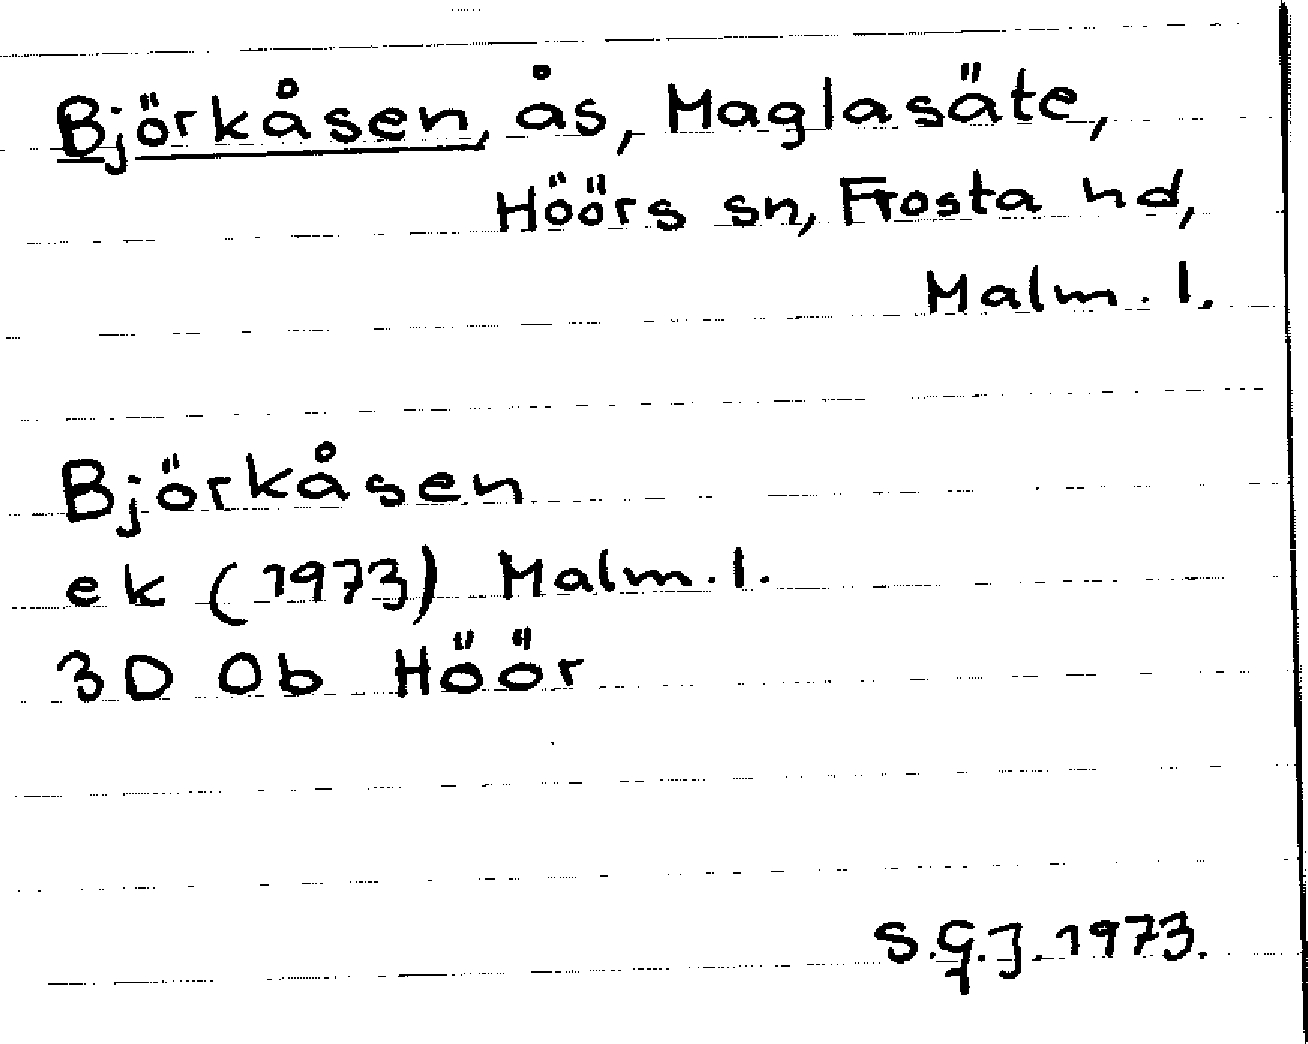 Björkåsen, ås, Maglasäte,
Höörs sn, Frosta hd,
Malm. l.
Björkåsen
ek (1973) Malm. l.
3D 0b Höör
S.G.J. 1973.